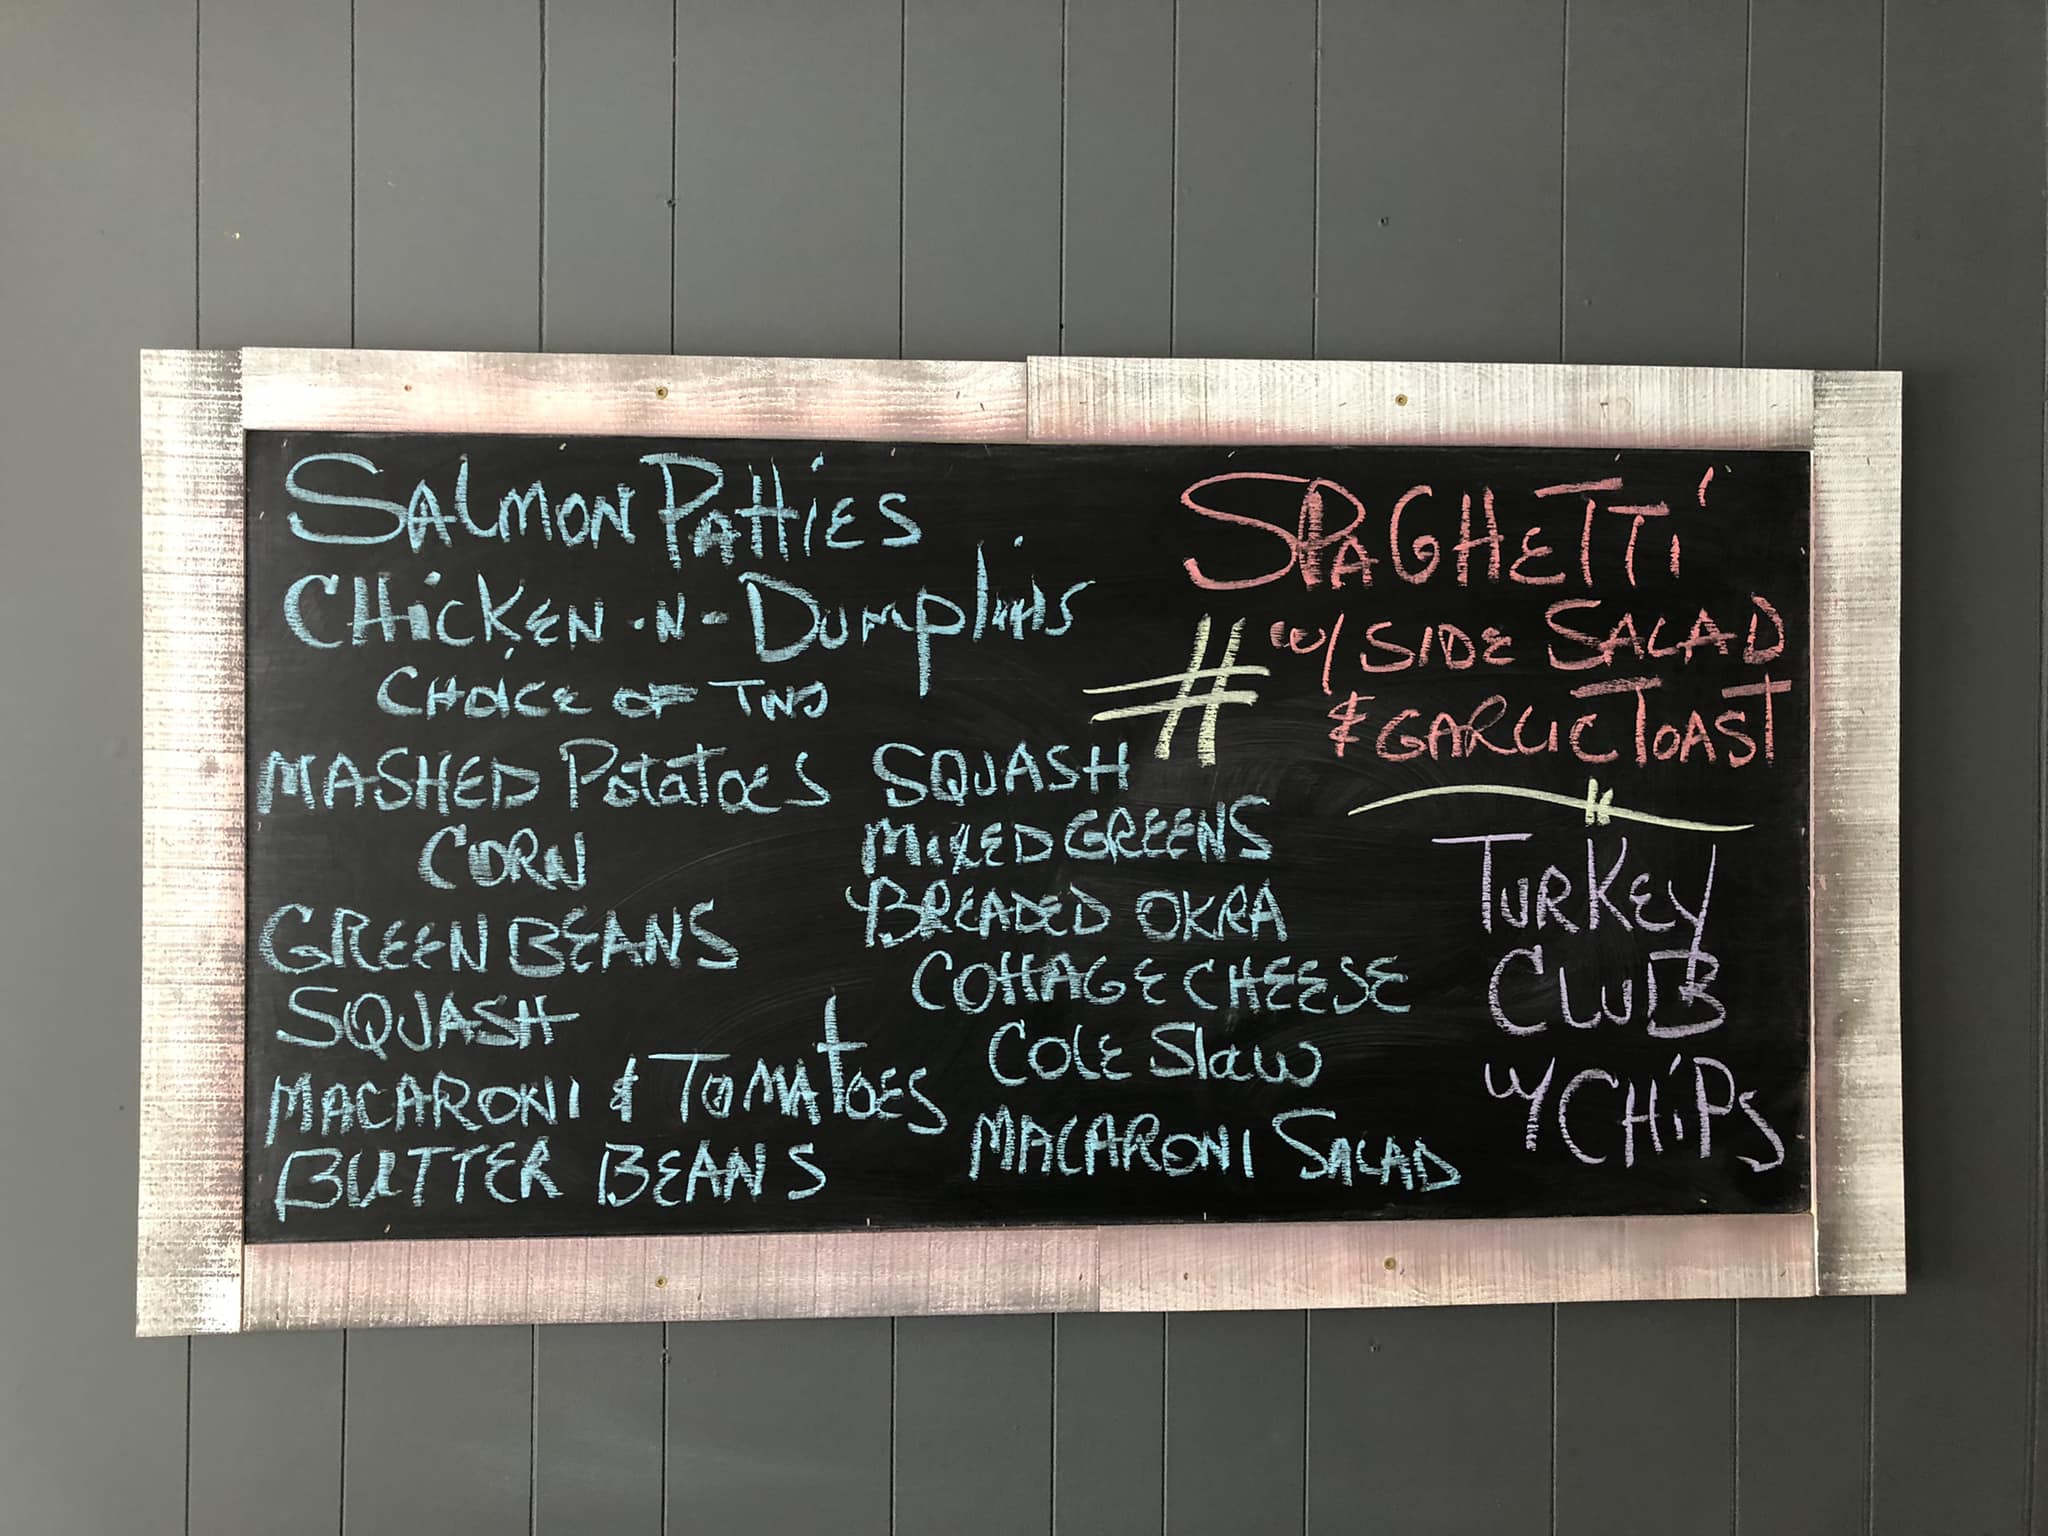 SALMON PATTIES
CHiCKEN -N- DUMPLiNS
CHOICE OF TWO
MASHED POTATOES
CORN
GREEN BEANS
SQUASH
MACARONI & TOMATOES
BUTTER BEANS
SQUASH
MIXED GREENS
BREADED OKRA
COTTAGE CHEESE
COLE Slaw
MACARONI SALAD
#
SPAGHETTi
w/ SIDE SALAD
& GARLIC TOAST
TURKEY
CLUB
w/ CHiPS